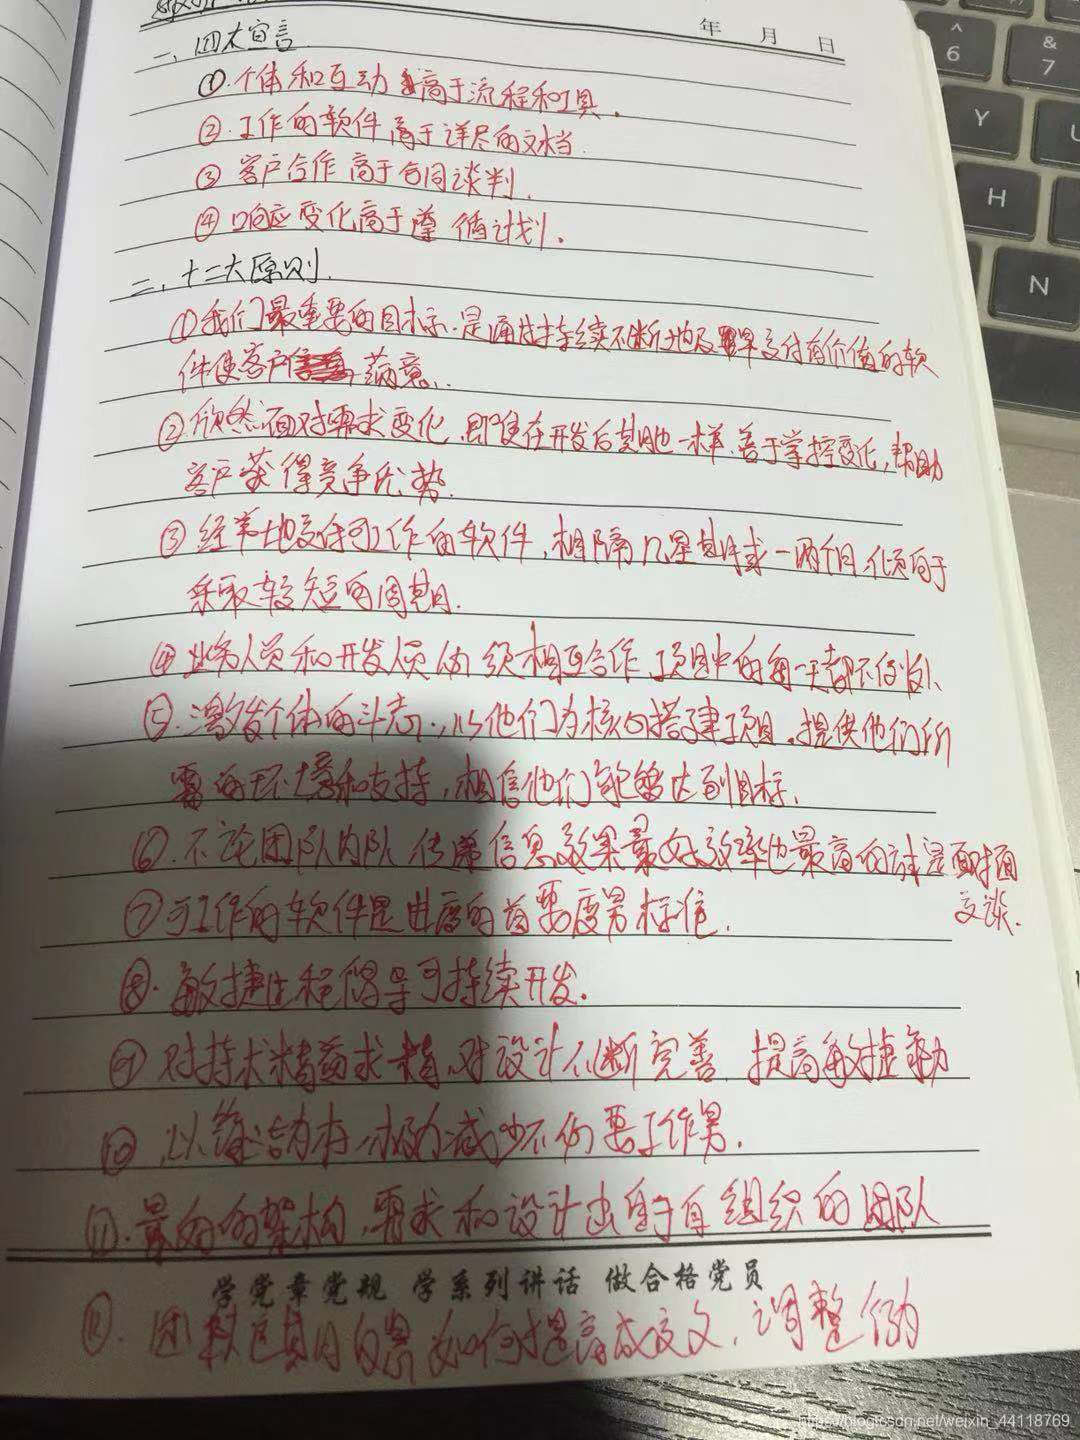 年 月 日
一、四大宣言
①个体和互动高于流程和工具.
②.工作的软件高于详尽的文档.
③ 客户合作高于合同谈判.
④响应变化高于遵循计划.
二、十二大原则.
①我们最重要的目标.是通过持续不断地及早交付有价值的软
件使客户满意.
②欣然面对需求变化.即使在开发后期也一样.善于掌控变化,帮助
客户获得竞争优势.
③经常地交付可工作的软件,相隔几星期或一两个月,倾向于
采取较短的周期.
④业务人员和开发人员必须相互合作 项目中的每一天都不例外、
⑤.激发个体的斗志.以他们为核心搭建项目.提供他们所
需的环境和支持,相信他们能够达到目标.
⑥.不论团队内队 传递信息效果最好效率也最高的 是面对面
交谈.
⑦可工作的软件是进度的首要度量标准.
⑧.敏捷过程倡导可持续开发.
⑨对技术精益求精,对设计不断完善 提高敏捷能力
⑩.以简洁为本,极力减少不必要工作量.
⑪.最好的架构,需求和设计出自于自组织的团队
学党章党规 学系列讲话 做合格党员
⑫.团队定期反思如何提高成效,调整
https://blog.csdn.net/weixin_44118769
6
&
7
Y
U
H
N